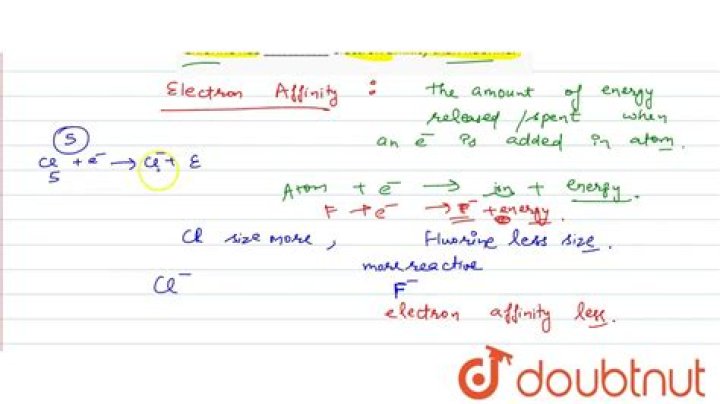 Electron Affinity : The amount of energy
released/spent when
an e⁻ is added in atom.
5
Cl + e⁻ → Cl⁻ + E
5
Atom + e⁻ → ion + energy.
F + e⁻ → F⁻ + energy.
Cl size more, Fluorine less size.
more reactive
Cl⁻ F⁻
electron affinity less.
doubtnut